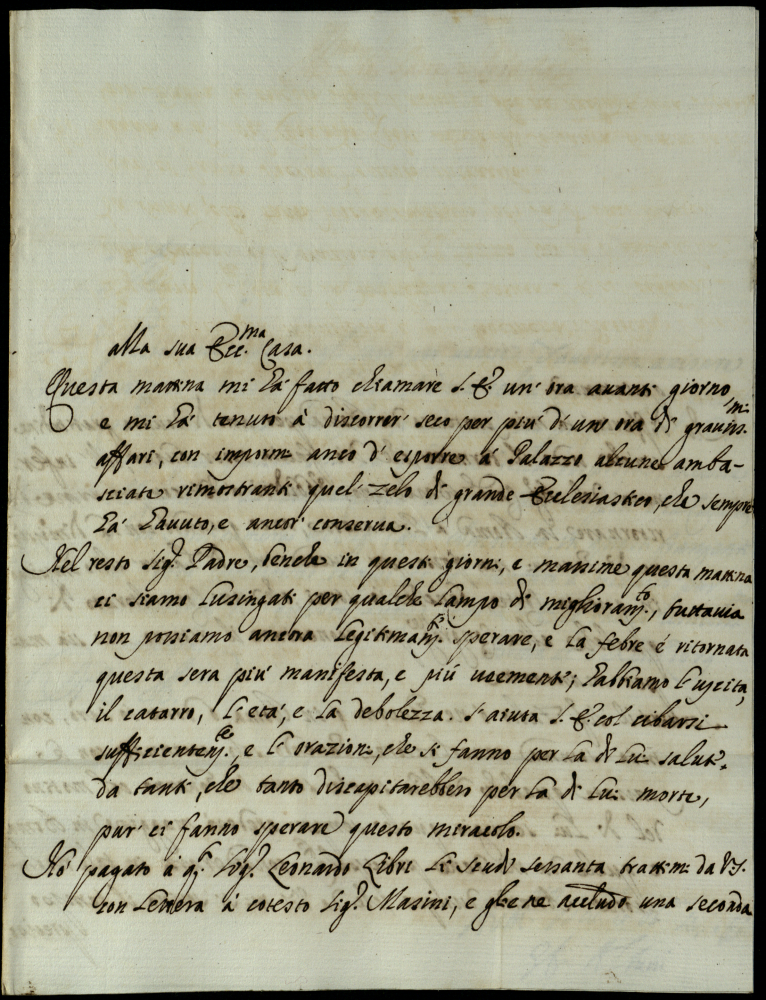 alla sua Ecc.ma Casa.
Questa mattina mi hà fatto chiamare S. E. un' ora avanti giorno
e mi hà tenuto à discorrer' seco per più d' un' ora di graviss.mi
affari, con impormi anco d' esporre à Palazzo alcune amba-
sciate rimostranti quel' zelo di grande Ecclesiastico, che sempre
hà havuto, e ancor' conserva.
Nel resto Sig.r Padre, benche in questi giorni, e massime questa mattina
ci siamo lusingati per qualche lampo di miglioram.to, tuttavia
non possiamo ancora legitimam.te sperare, e la febre è ritornata
questa sera più manifesta, e più veemente; habbiamo l' uscita,
il catarro, l' età, e la debolezza. S' aiuta S. E. col cibarsi
sufficientem.te, e l' orazioni, che si fanno per la di lui salute
da tanti, che tanto discapitarebbero per la di lui morte,
pur' ci fanno sperare questo miracolo.
Hò pagato à q.to Sig.r Leonardo Libri li scudi sessanta trattimi da VS.
con lettera à cotesto Sig.r Masini, e gliene accludo una seconda